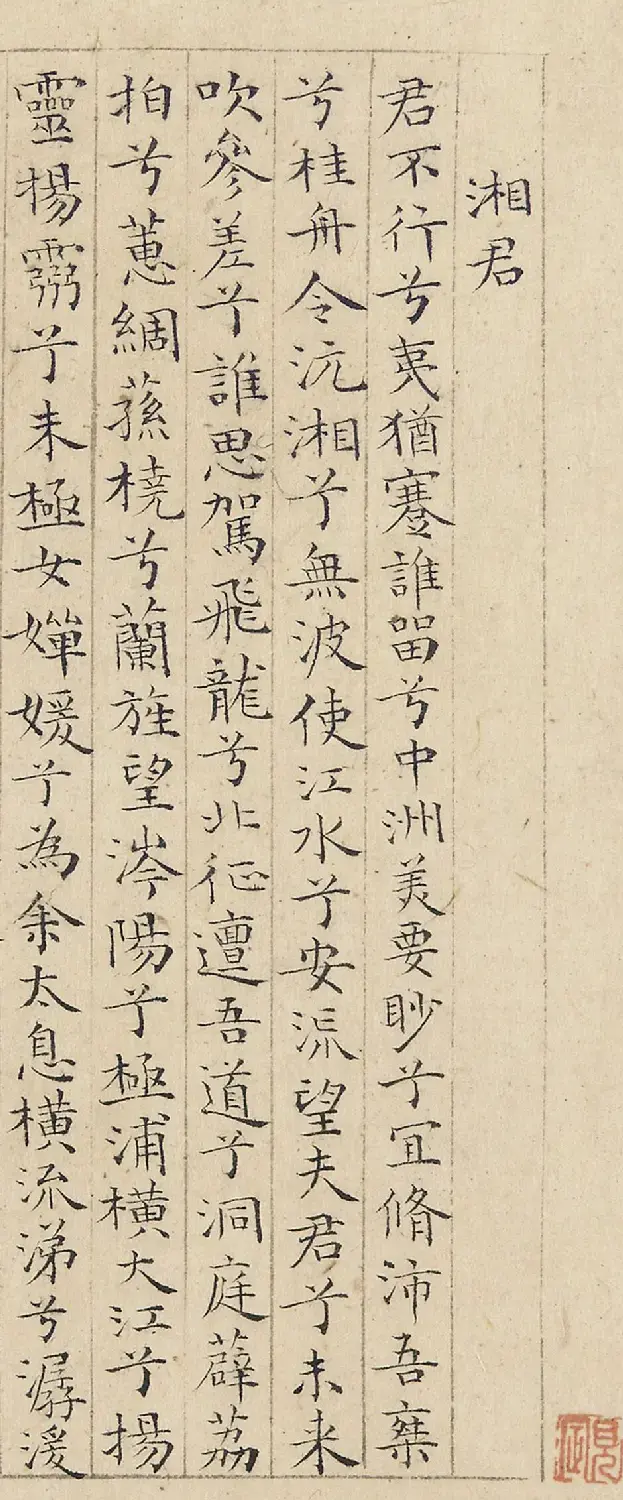 湘君
君不行兮夷猶蹇誰留兮中洲美要眇兮冝脩沛吾椉
兮桂舟令沅湘兮無波使江水兮安流望夫君兮未来
吹參差兮誰思駕飛龍兮北征邅吾道兮洞庭薜荔
拍兮蕙綢蓀橈兮蘭旌望涔陽兮極浦橫大江兮揚
靈揚靈兮未極女嬋媛兮為余太息橫流涕兮潺湲